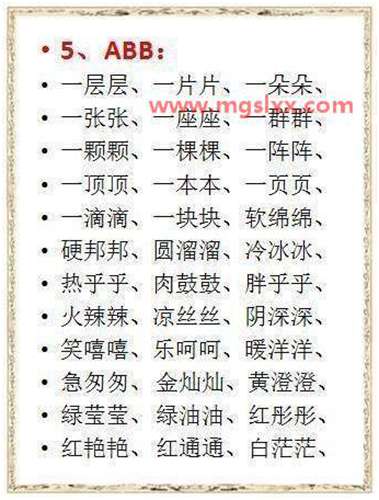 • 5、ABB：
• 一层层、一片片、一朵朵、
www.mgslxx.com
• 一张张、一座座、一群群、
• 一颗颗、一棵棵、一阵阵、
• 一顶顶、一本本、一页页、
• 一滴滴、一块块、软绵绵、
• 硬邦邦、圆溜溜、冷冰冰、
• 热乎乎、肉鼓鼓、胖乎乎、
• 火辣辣、凉丝丝、阴深深、
• 笑嘻嘻、乐呵呵、暖洋洋、
• 急匆匆、金灿灿、黄澄澄、
• 绿莹莹、绿油油、红彤彤、
• 红艳艳、红通通、白茫茫、